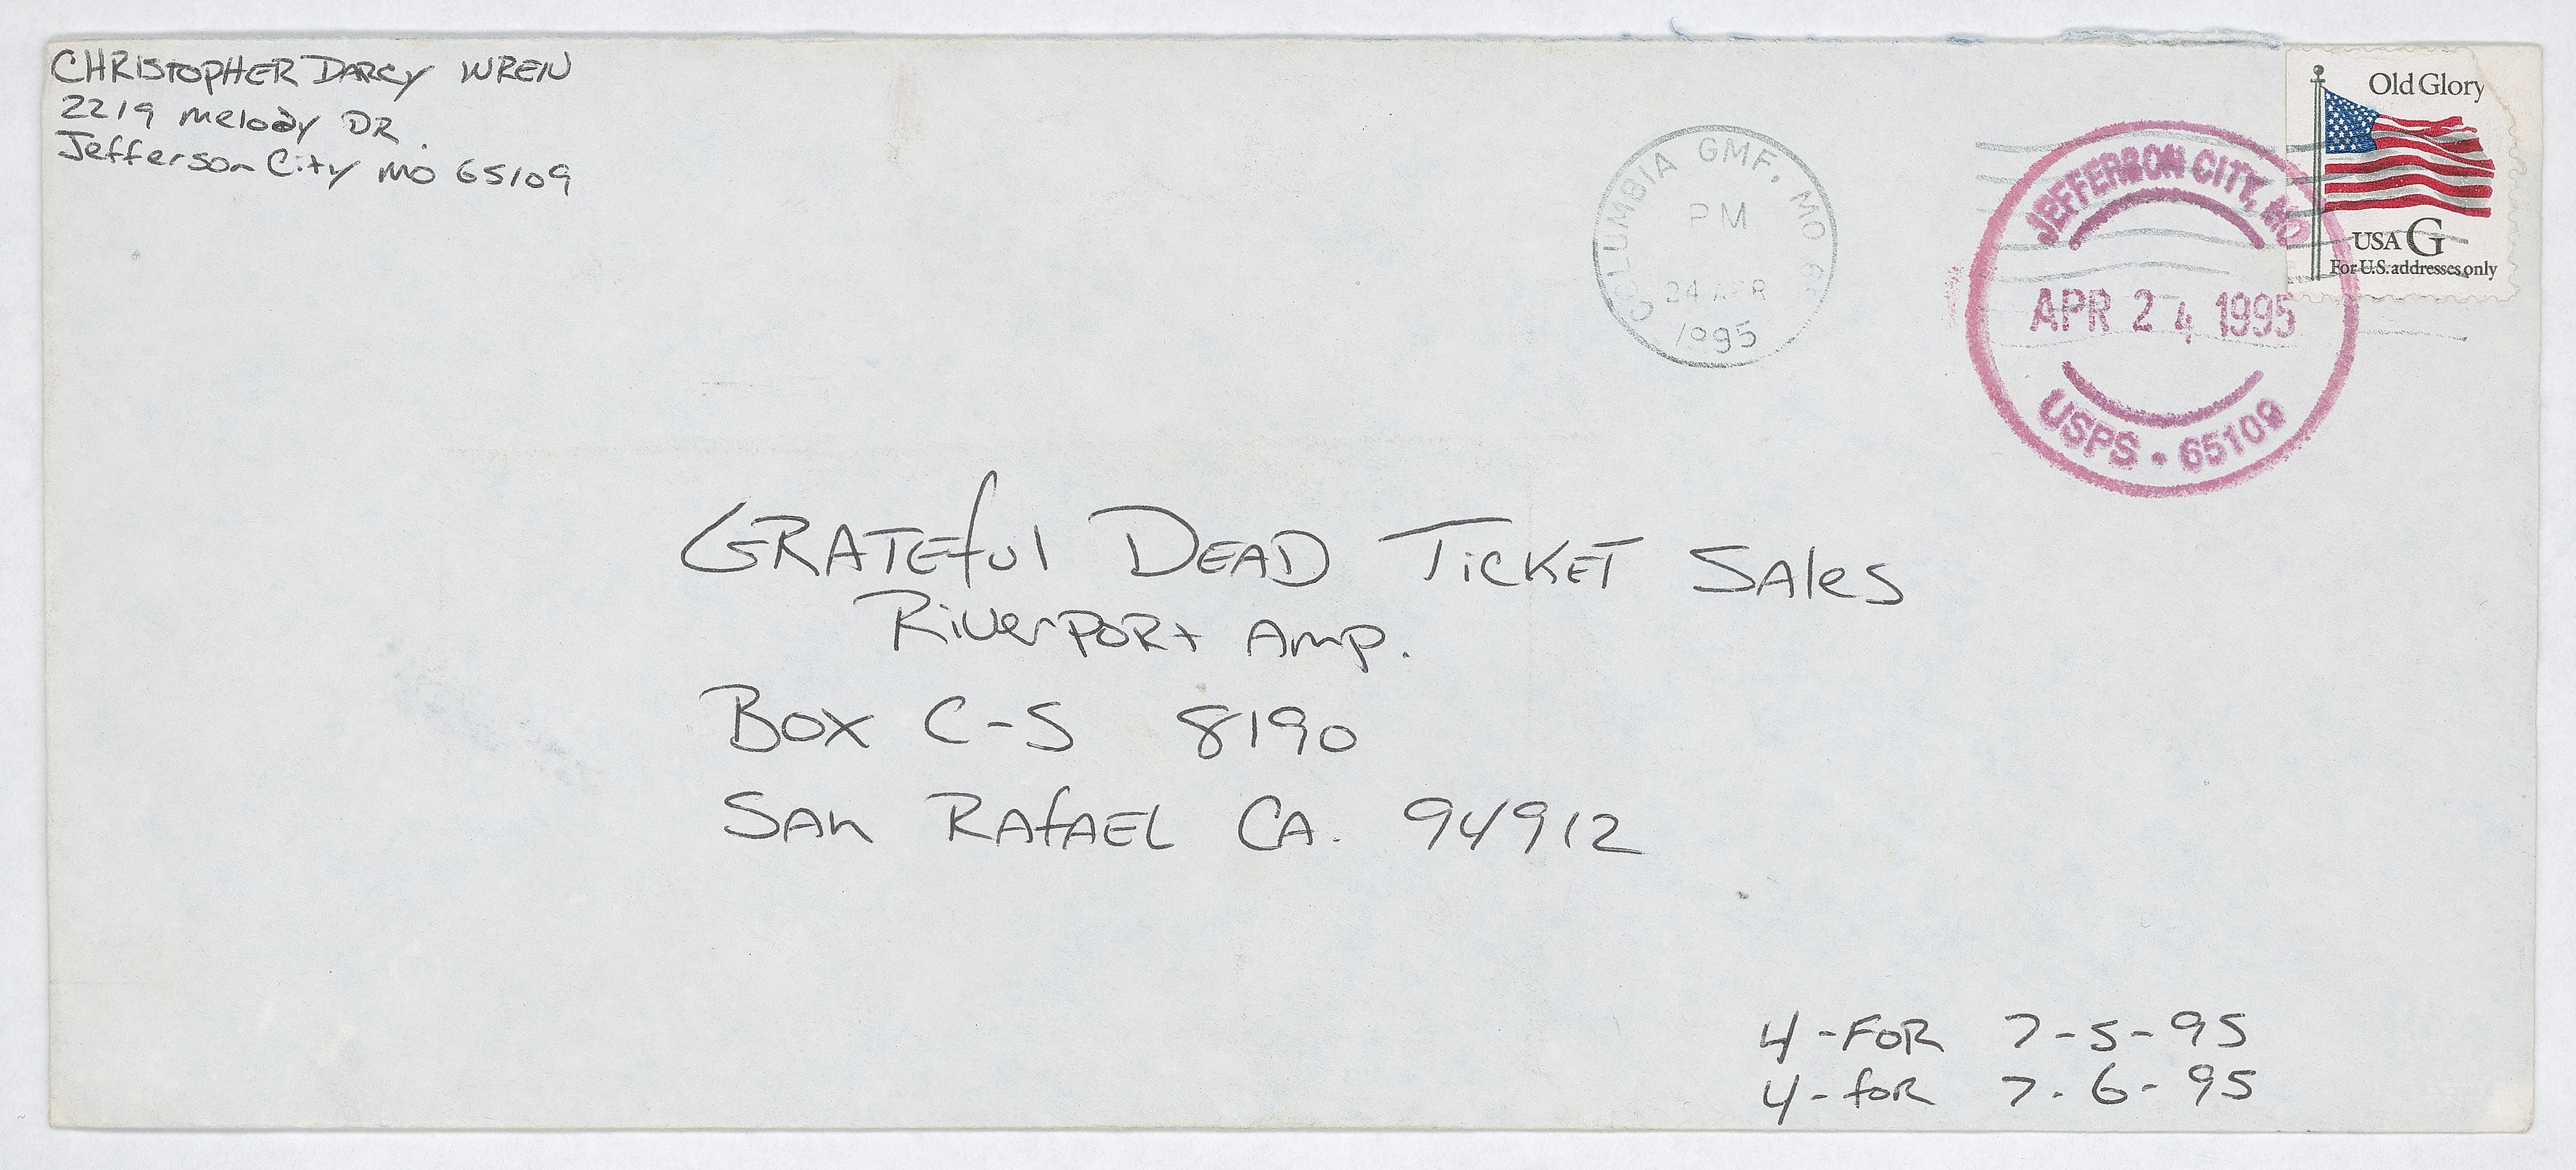 CHRISTOPHER DARCY WREN
2219 Melody DR.
Jefferson City MO 65109
COLUMBIA GMF, MO
PM
24 APR
1995
JEFFERSON CITY, MO
APR 24 1995
USPS • 65109
Old Glory
USA G
For U.S. addresses only
GRATEful DEAD TicKET SAles
RiverPORt Amp.
Box C-S 8190
SAn RAfAEL CA. 94912
4-FOR 7-5-95
4-foR 7-6-95